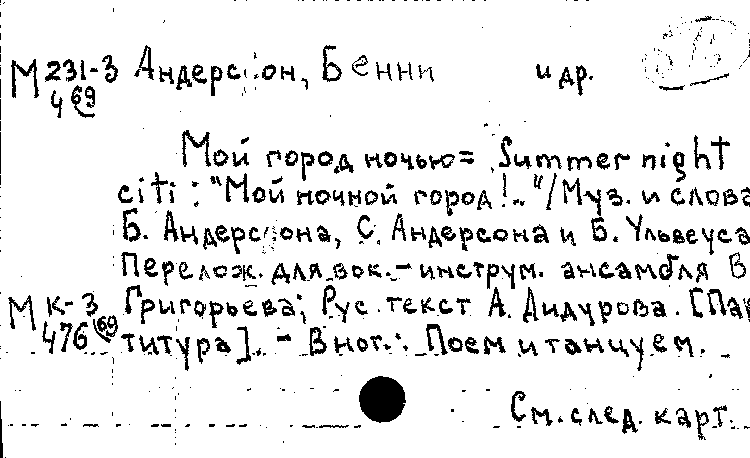 М 231-3 Андерссон, Бенни и др.
4 69
Мой город ночью = Summer night
citi : "Мой ночной город!.."/Муз. и слова
Б. Андерссона, С. Андерсона и Б. Ульвеуса
Перелож. для вок.-инструм. ансамбля В
М К-3 Григорьева; Рус. текст А. Дидурова. [Пар
476 69 титура]. - В ног.: Поем и танцуем.
См. след. карт.